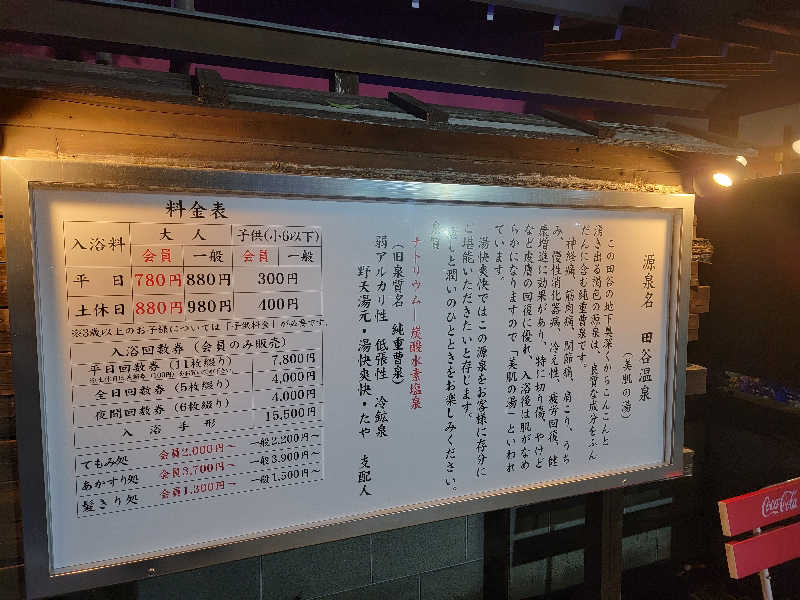 料金表
入浴料 大人 子供(小6以下)
会員 一般 会員 一般
平日 780円 880円 300円
土休日 880円 980円 400円
※3歳以上のお子様については「子供料金」が必要です。
入浴回数券(会員のみ販売)
平日回数券(11枚綴り) 7,800円
全日回数券(5枚綴り) 4,000円
夜間回数券(6枚綴り) 4,000円
入浴手形 15,500円
てもみ処 会員2,000円～ 一般2,200円～
あかすり処 会員3,700円～ 一般3,900円～
髪きり処 会員1,300円～ 一般1,500円～
源泉名 田谷温泉
(美肌の湯)
この田谷の地下奥深くからこんこんと
湧き出る褐色の源泉は、良質な成分をふん
だんに含む純重曹泉です。
神経痛、筋肉痛、関節痛、肩こり、うち
み、慢性消化器病、冷え性、疲労回復、健
康増進に効果があり、特に切り傷、やけど
など皮膚の回復に優れ、入浴後は肌がなめ
らかになりますので「美肌の湯」といわれ
ています。
湯快爽快ではこの源泉をお客様に存分に
ご堪能いただきたいと存じます。
癒しと潤いのひとときをお楽しみください。
泉質
ナトリウム―炭酸水素塩泉
(旧泉質名 純重曹泉)
弱アルカリ性 低張性 冷鉱泉
野天湯元・湯快爽快・たや 支配人
Coca-Cola